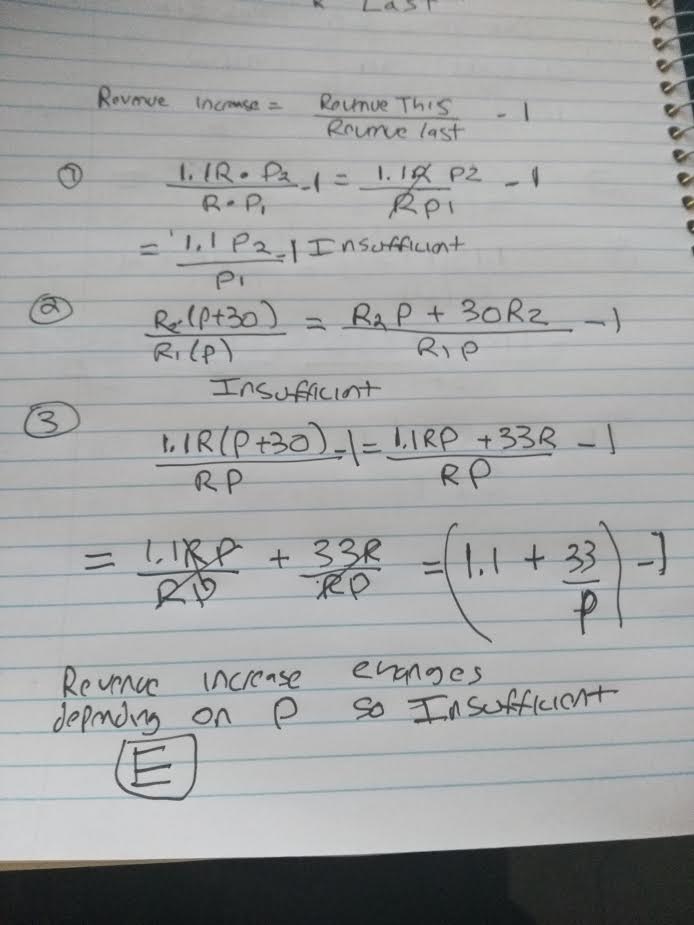 Last
Revenue increase = Revenue This / Revenue last - 1
① 1.1R • P2 / R • P1 - 1 = 1.1R P2 / R P1 - 1
= 1.1 P2 / P1 - 1 Insufficient
② R2 (P+30) / R1 (P) = R2 P + 30R2 / R1 P - 1
Insufficient
③ 1.1R(P+30) / RP - 1 = 1.1RP + 33R / RP - 1
= 1.1RP / RP + 33R / RP = (1.1 + 33 / P) - 1
Revenue increase changes
depending on P so Insufficient
E